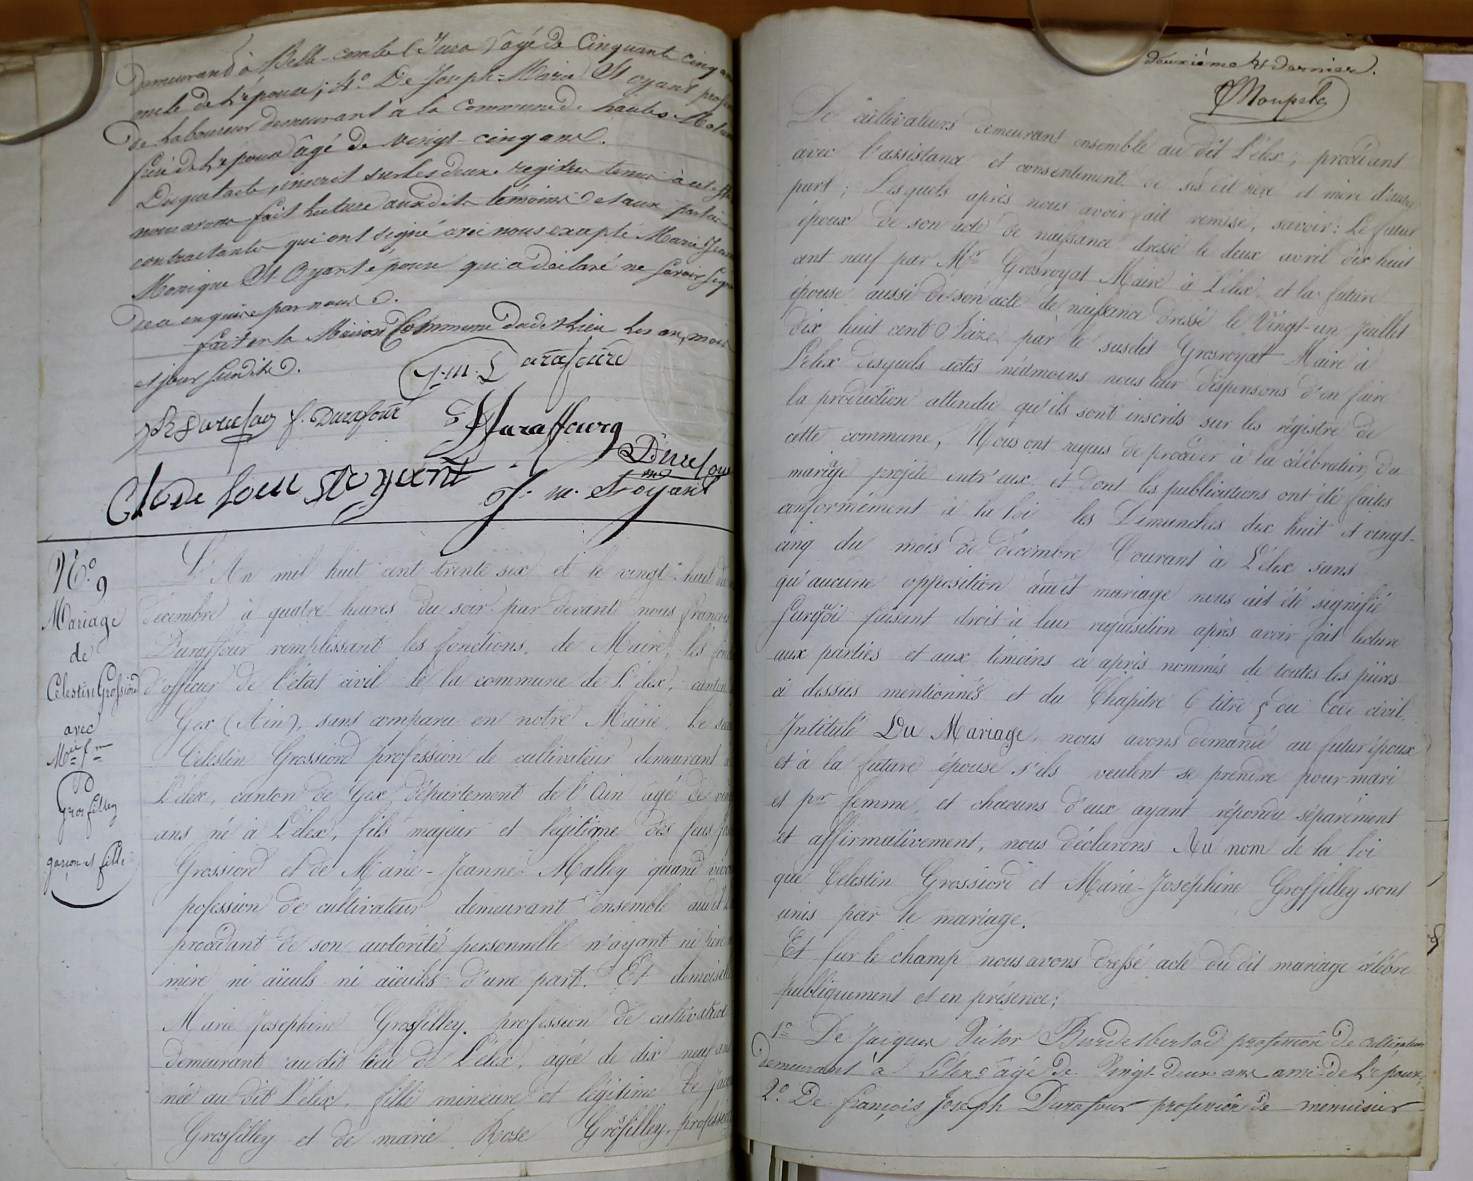 demeurand à Belle-combe (Jura) âgé de Cinquant cinq an
ncle de l'epouse; 4.º De Joseph-Marie St oyant profe
de laboureur demeurant a la Commune de hautes-Molun
frère de l'epouse âgé de veingt-cinq ans.
Duquel acte, inscrit sur les deux registres tenus à cet eff
nous avons fait lecture auxdits témoins et aux partie
contractantes qui ont signé avec nous excepté Marie Jean
Monique St Oyant épouse qui a déclaré ne savoir sign
de ce enquise par nous.
fait en la Maison Commune dudit Lélex les an, mois
et jour susdits.
J. M. Durafour
f. Durafour
Duraffourg
Durafour
Clode Louis St oyant
J. M. St oyant
N.º 9
Mariage
de
Célestin Grossiord
avec
M.ie J.ine
Grosfilley
garçon et fille
L'An mil huit cent trente six et le vingt-huit du
décembre à quatre heures du soir par devant nous francois
Duraffour remplissant les fonctions de Maire les fonc
d'officier de l'état civil de la commune de Lélex, canton
Gex (Ain), sont comparu en notre Mairie le sieu
Célestin Grossiord profession de cultivateur demeurant à
Lélex, canton de Gex, département de l'Ain âgé de ving
ans né à Lélex, fils majeur et légitime des feus
Grossiord et de Marie-Jeanne Malley quand viva
profession de cultivateur demeurant ensemble audit
procédant de son autorité personnelle n'ayant ni père
mère ni aïeuls ni aïeules d'une part. Et demoisel
Marie Josephine Grosfilley profession de cultivatrice
demeurant au dit lieu de Lélex, âgée de dix neuf ans
née au dit Lélex, fille mineure et légitime de Jacq
Grosfilley et de marie Rose Grosfilley, profession
deuxième et dernier.
Mouperla
De cultivateurs demeurant ensemble au dit Lélex; procédant
avec l'assistance et consentement de ses dit père et mère d'autre
part; Lesquels après nous avoir fait remise, savoir: Le futur
époux de son acte de naissance dressé le deux avril dix huit
cent neuf par M.r Grosroyat Maire à Lélex et la future
épouse aussi de son acte de naissance dressé le Vingt-un Juillet
dix huit cent Seize par le susdit Grosroyat Maire à
Lélex desquels actes néanmoins nous leur dispensons d'en faire
la production attendu qu'ils sont inscrits sur les régistre de
cette commune, Nous ont requis de procéder à la célébration du
mariage projeté entr'eux et dont les publications ont été faites
conformément à la loi les Dimanches dix huit et vingt-
cinq du mois de décembre Courant à Lélex sans
qu'aucune opposition audit mariage nous ait été signifié
Surquoi faisant droit à leur requisition après avoir fait lecture
aux parties et aux témoins ci après nommés de toutes les pièces
ci dessus mentionnés et du Chapitre 6 titre 5 du Code civil
Intitulé Du Mariage, nous avons demandé au futur époux
et à la future épouse s'ils veulent se prendre pour mari
et p.r femme, et chacuns d'eux ayant répondu séparement
et affirmativement, nous déclarons Au nom de la loi
que Célestin Grossiord et Marie-Joséphine Grosfilley sont
unis par le mariage.
Et sur le champ nous avons dressé acte du dit mariage célébré
publiquement et en présence;
1.º De Jacques Victor profession de cultivateur
demeurant à Lélex âgé de Vingt deux ans ami de l'epoux;
2.º De françois Joseph Durafour profession de menuisier